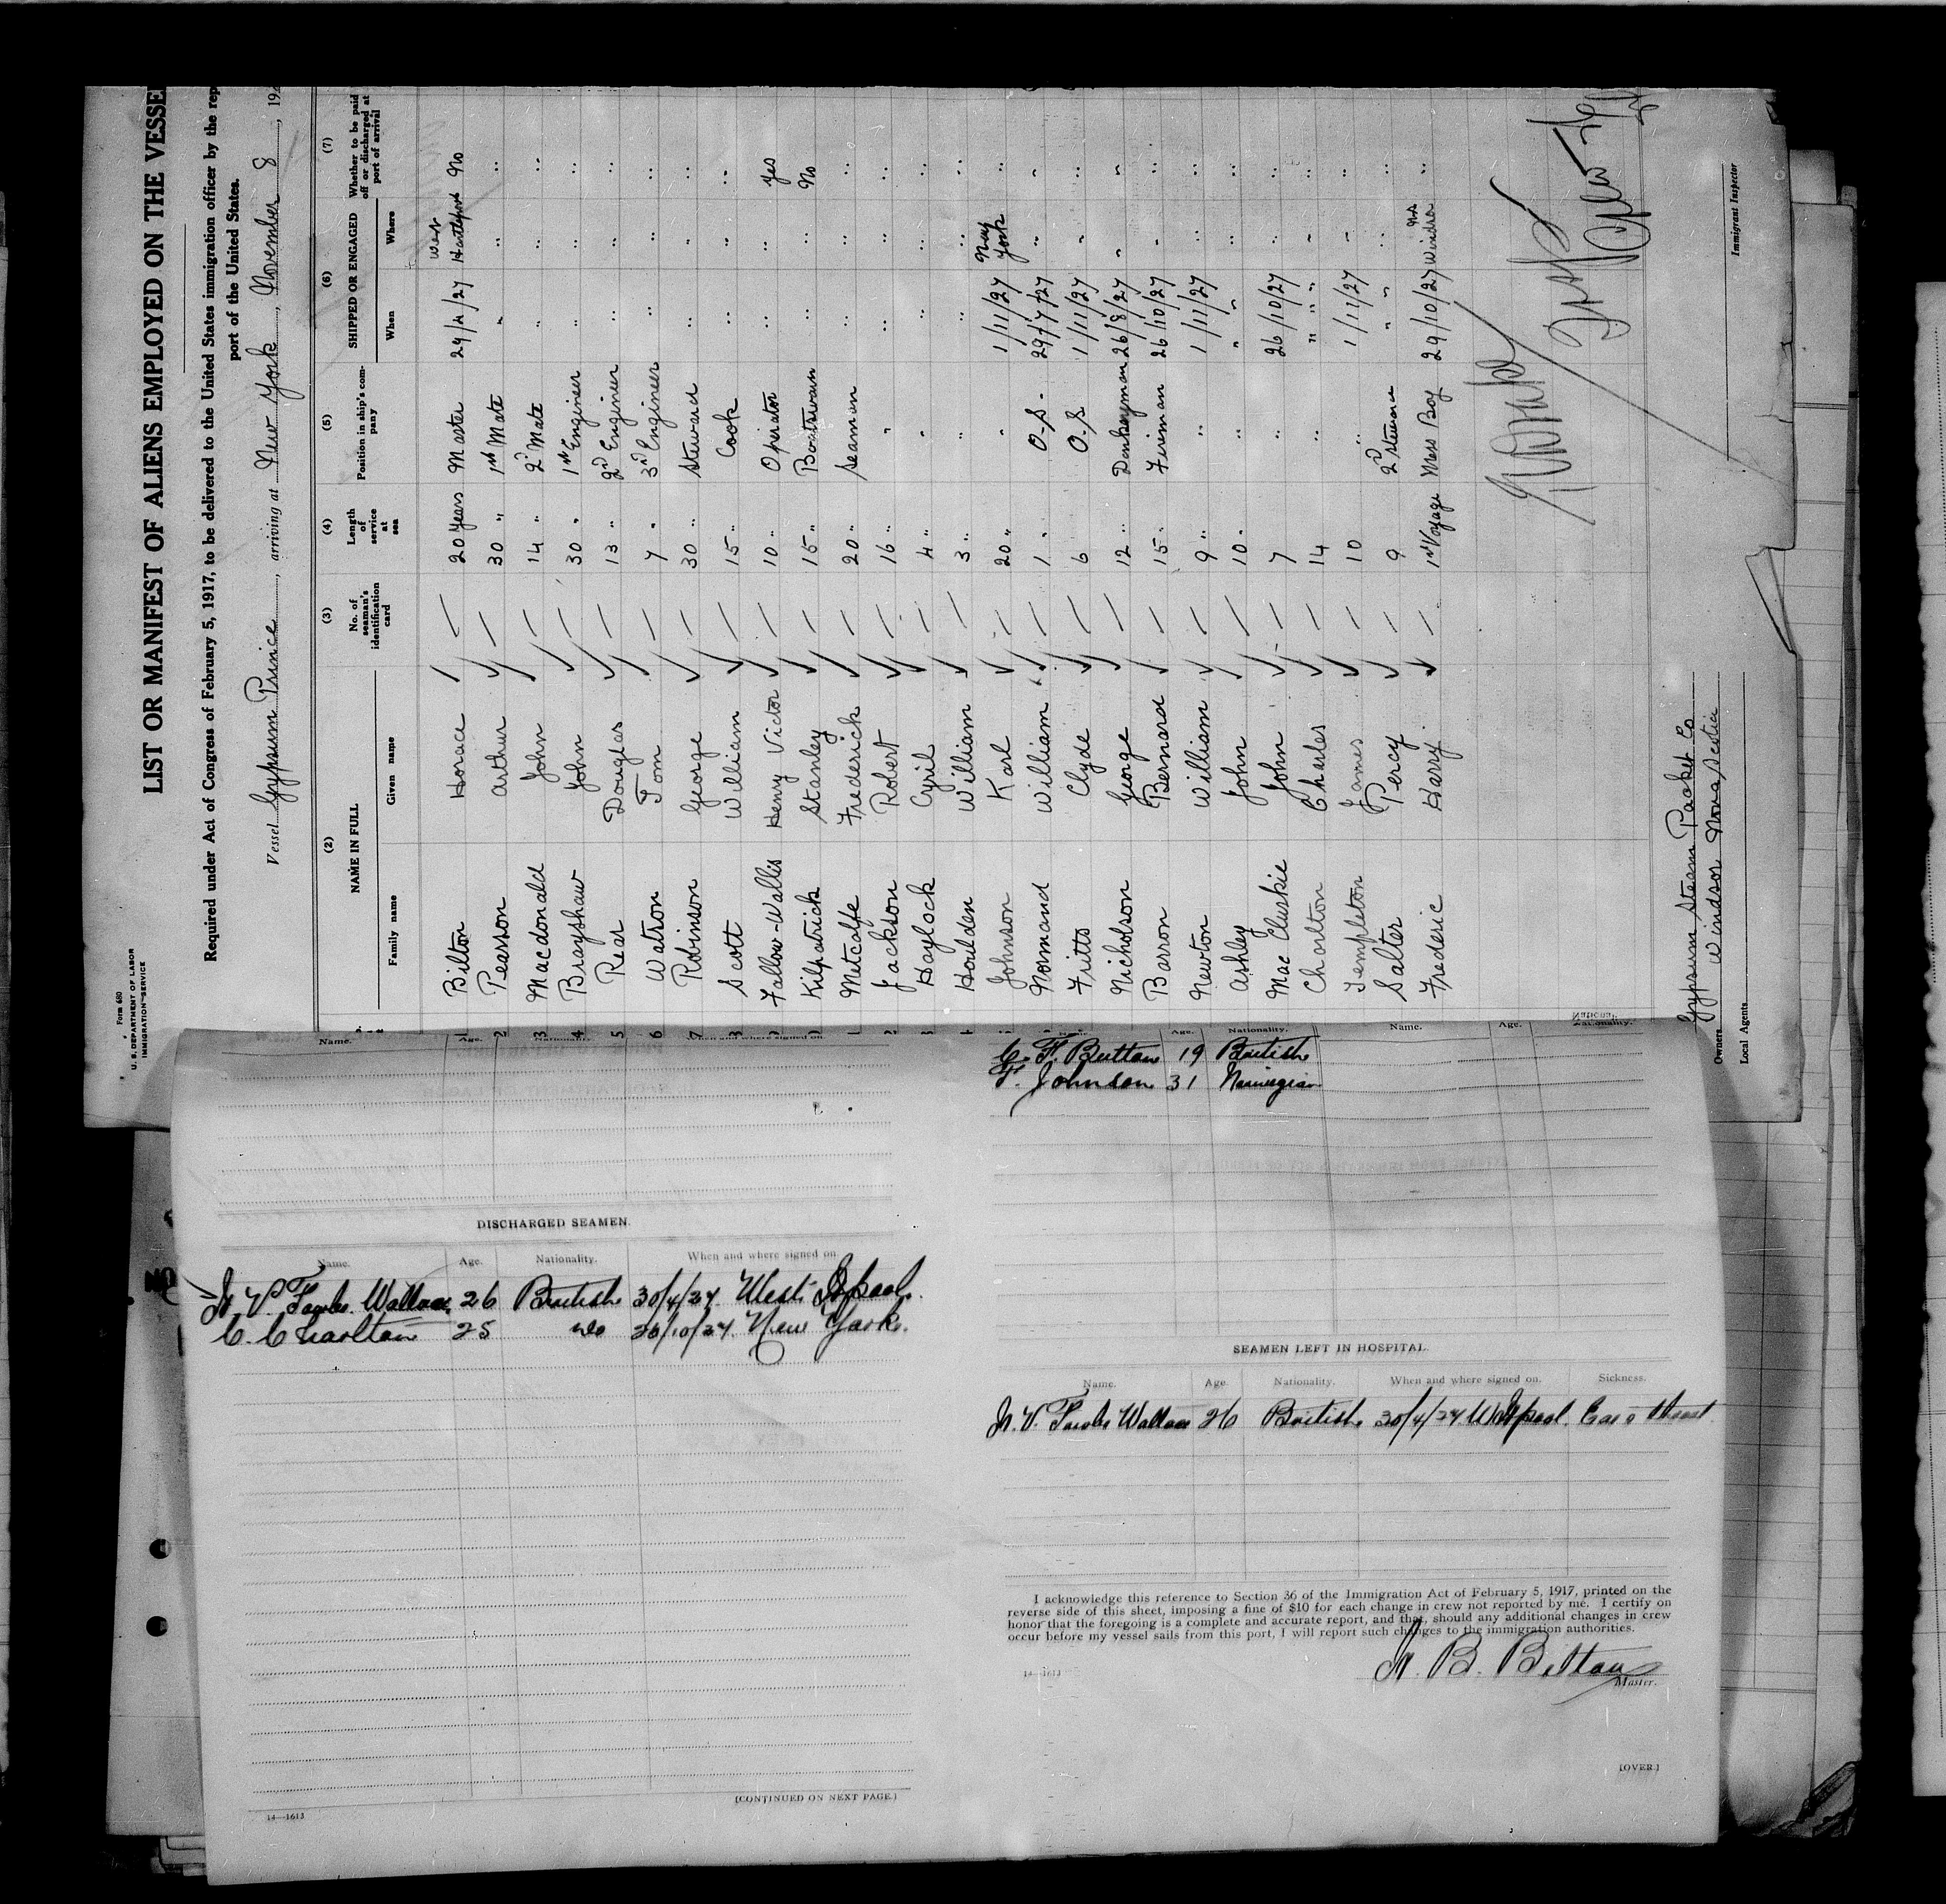 Form 680
U. S. DEPARTMENT OF LABOR
IMMIGRATION SERVICE
LIST OR MANIFEST OF ALIENS EMPLOYED ON THE VESSE
Required under Act of Congress of February 5, 1917, to be delivered to the United States immigration officer by the rep
port of the United States.
Vessel Gypsum Prince, arriving at New York, November 8, 19
(2) (3) (4) (5) (6) (7)
NAME IN FULL No. of seaman's identification card Length of service at sea Position in ship's company SHIPPED OR ENGAGED Whether to be paid off or discharged at port of arrival
Family name Given name When Where
1 Bilton Horace — 20 Years Master 29/4/27 West Hartlepool No
2 Pearson Arthur — 30 " 1st Mate " " "
3 Macdonald John — 14 " 2d Mate " " "
4 Brayshaw John — 30 " 1st Engineer " " "
5 Rear Douglas — 13 " 2d Engineer " " "
6 Watson Tom — 7 " 3d Engineer " " "
7 Robinson George — 30 " Steward " " "
8 Scott William — 15 " Cook " " "
9 Fallow-Wallis Henry Victor — 10 " Operator " " Yes
0 Kilpatrick Stanley — 15 " Boatswain " " No
1 Metcalfe Frederick — 20 " Seaman " " "
2 Jackson Robert — 16 " " " " "
3 Haylock Cyril — 4 " " " " "
4 Houlden William — 3 " " " " "
Johnson Karl — 20 " " 1/11/27 New York "
Normand William — 1 " O.S. 29/7/27 " "
Fritts Clyde — 6 O.S 1/11/27 " "
Nicholson George — 12 " Donkeyman 26/8/27 " "
Barron Bernard — 15 " Fireman 26/10/27 " "
Newton William — 9 " " 1/11/27 " "
Ashley John — 10 " " " " "
Mac Cluskie John — 7 " 26/10/27 " "
Charlton Charles — 14 " " " "
Templeton James — 10 " 1/11/27 " "
Salter Percy — 9 2d Steward " " "
Frederic Harry — 1st Voyage Mess Boy 29/10/27 Windsor N.S. "
Owners Gypsum Steam Packet Co
Windsor Nova Scotia
Local Agents
Immigrant Inspector
Name. Age. Nationality. When and where signed on.
DISCHARGED SEAMEN.
Name. Age. Nationality. When and where signed on.
H. V. Wallace 26 British 30/4/27 West
C. Charlton 25 do 26/10/27 New York.
(CONTINUED ON NEXT PAGE.)
14—1613
Name. Age. Nationality. Name. Age. Nationality.
19 British
Johnson 31 Norwegian
SEAMEN LEFT IN HOSPITAL.
Name. Age. Nationality. When and where signed on. Sickness.
H. V. Wallace 26 British 30/4/27
I acknowledge this reference to Section 36 of the Immigration Act of February 5, 1917, printed on the
reverse side of this sheet, imposing a fine of $10 for each change in crew not reported by me. I certify on
honor that the foregoing is a complete and accurate report, and that, should any additional changes in crew
occur before my vessel sails from this port, I will report such changes to the immigration authorities.
H. B. Bilton
Master.
14—1613
[OVER.]